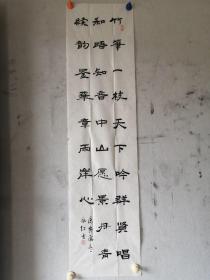 竹筆一枝天下吟群賢唱
和晤知音中山愿景丹青
續韵墨華章两岸心